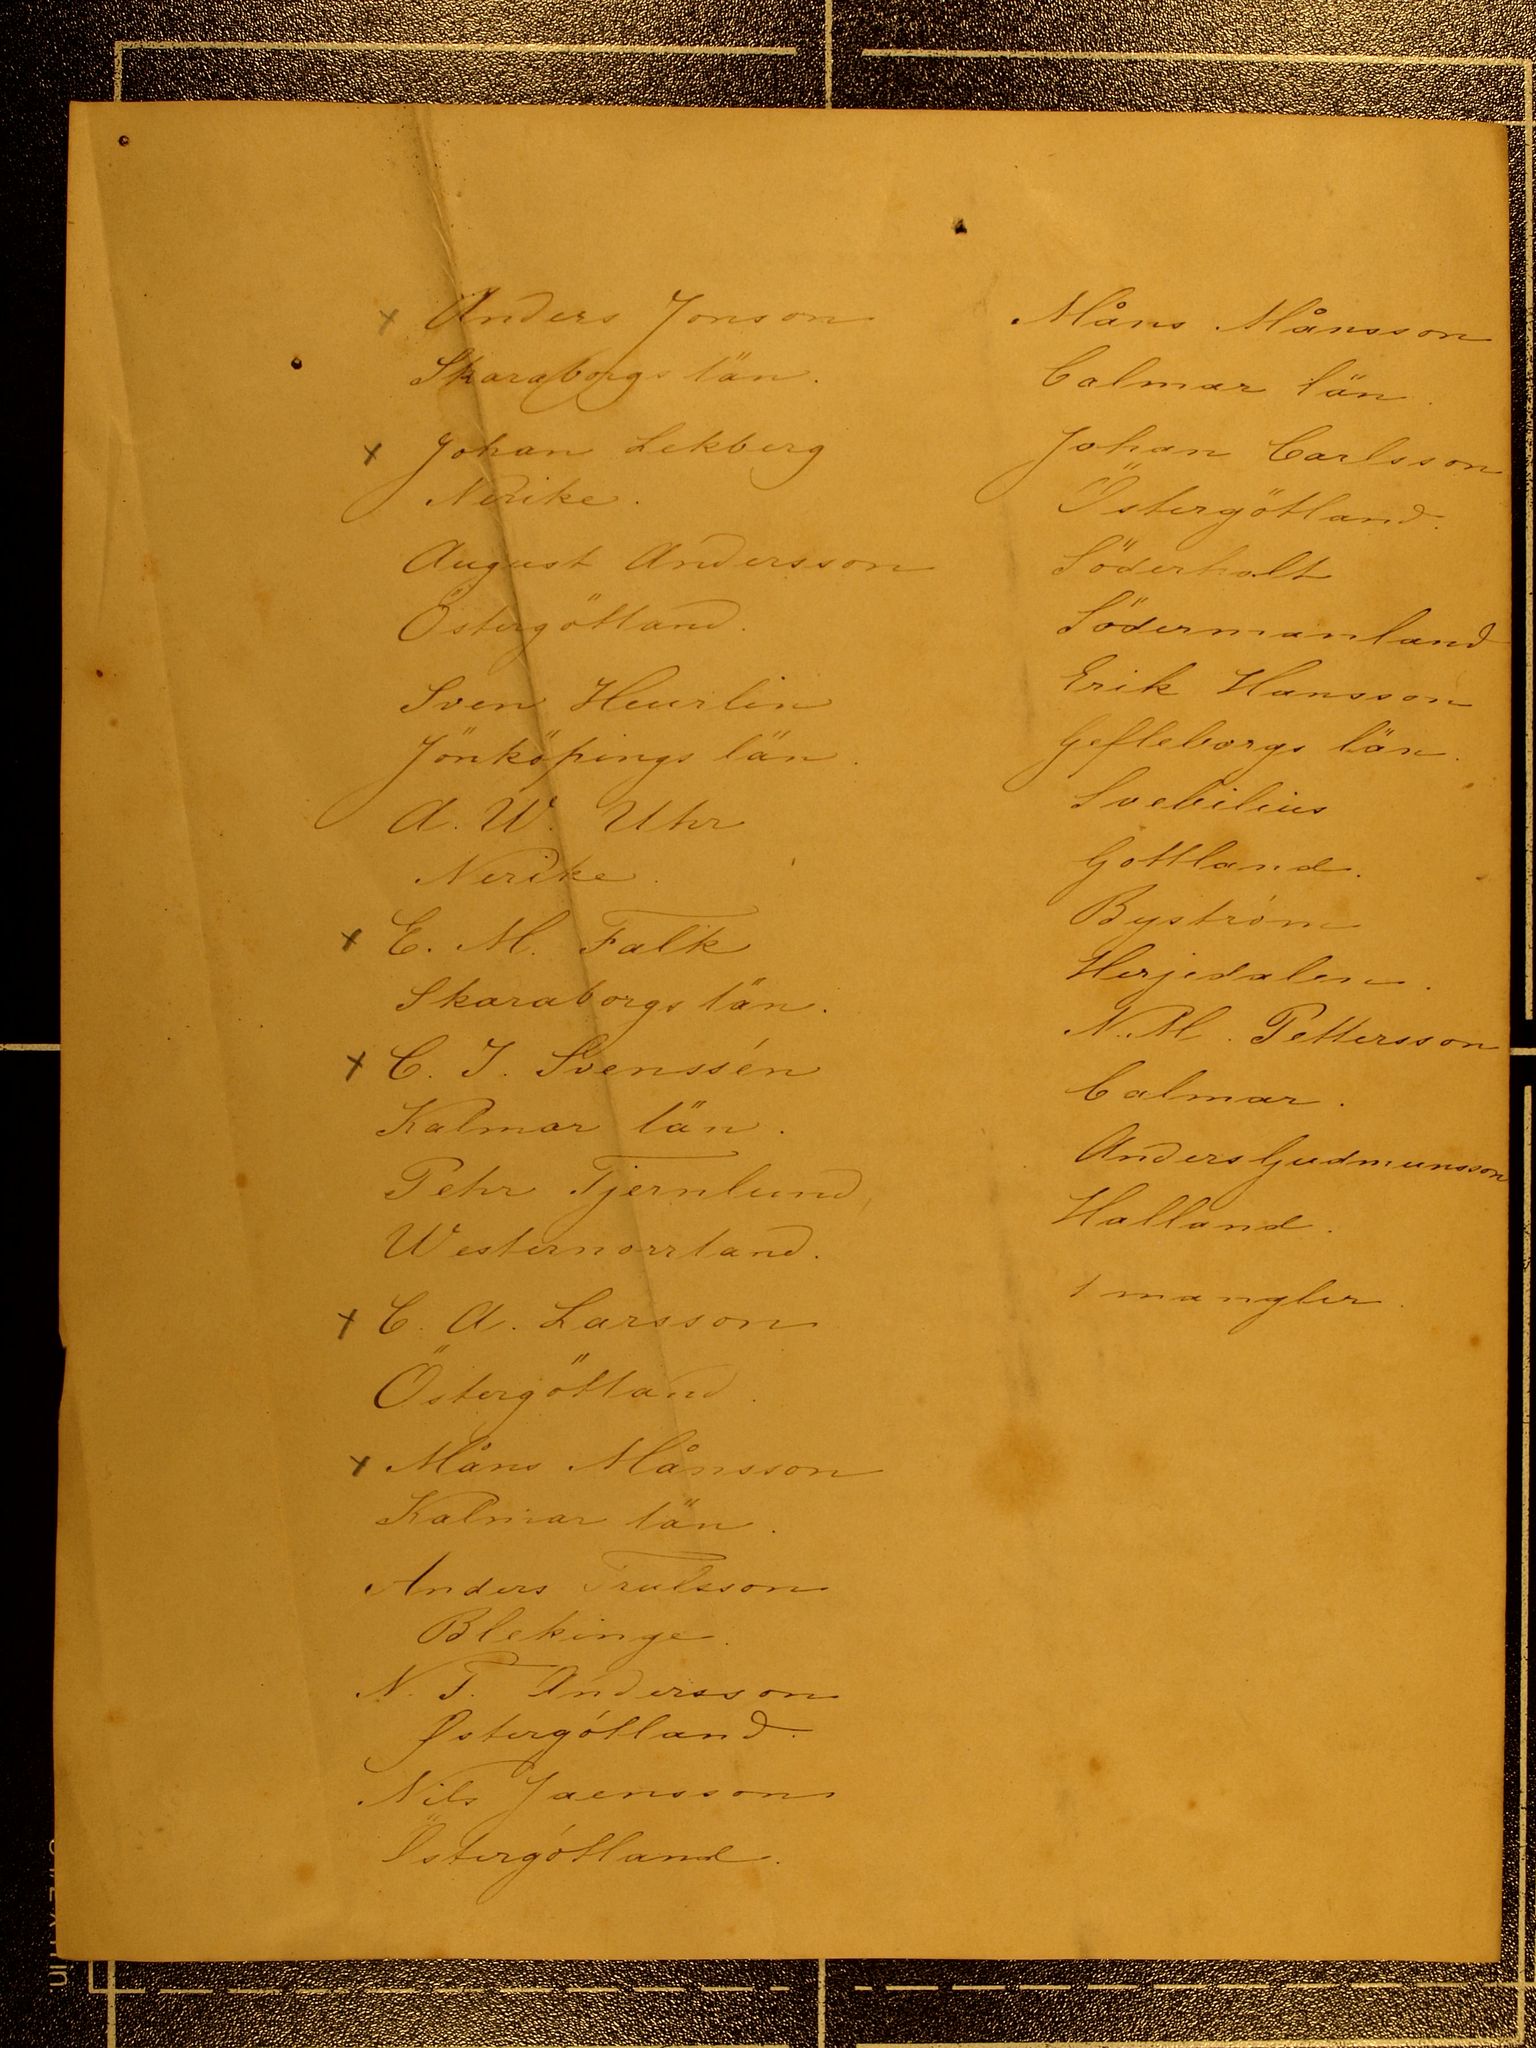 x Anders Jonson
Skaraborgs län.
x Johan Lekberg
Nerike.
August Andersson
Östergötland.
Sven Heurlin
Jönköpings län.
A. W. Uhr
Nerike.
x E. M. Falk
Skaraborgs län.
x C. J. Svenssén
Kalmar län.
Pehr Tjernlund,
Westernorrland.
x C. A. Larsson
Östergötland.
x Måns Månsson
Kalmar län.
Anders Trulsson
Blekinge.
N. P. Andersson
Østergötland.
Nils Jaensson
Östergötland.
Måns Månsson
Calmar län.
Johan Carlsson
Östergötland.
Söderholt
Södermanland
Erik Hansson
Gefleborgs län.
Svebilius
Gottland.
Byström
Herjedalen.
N. M. Pettersson
Calmar.
Anders Gudmunsson
Halland.
1 mangler.